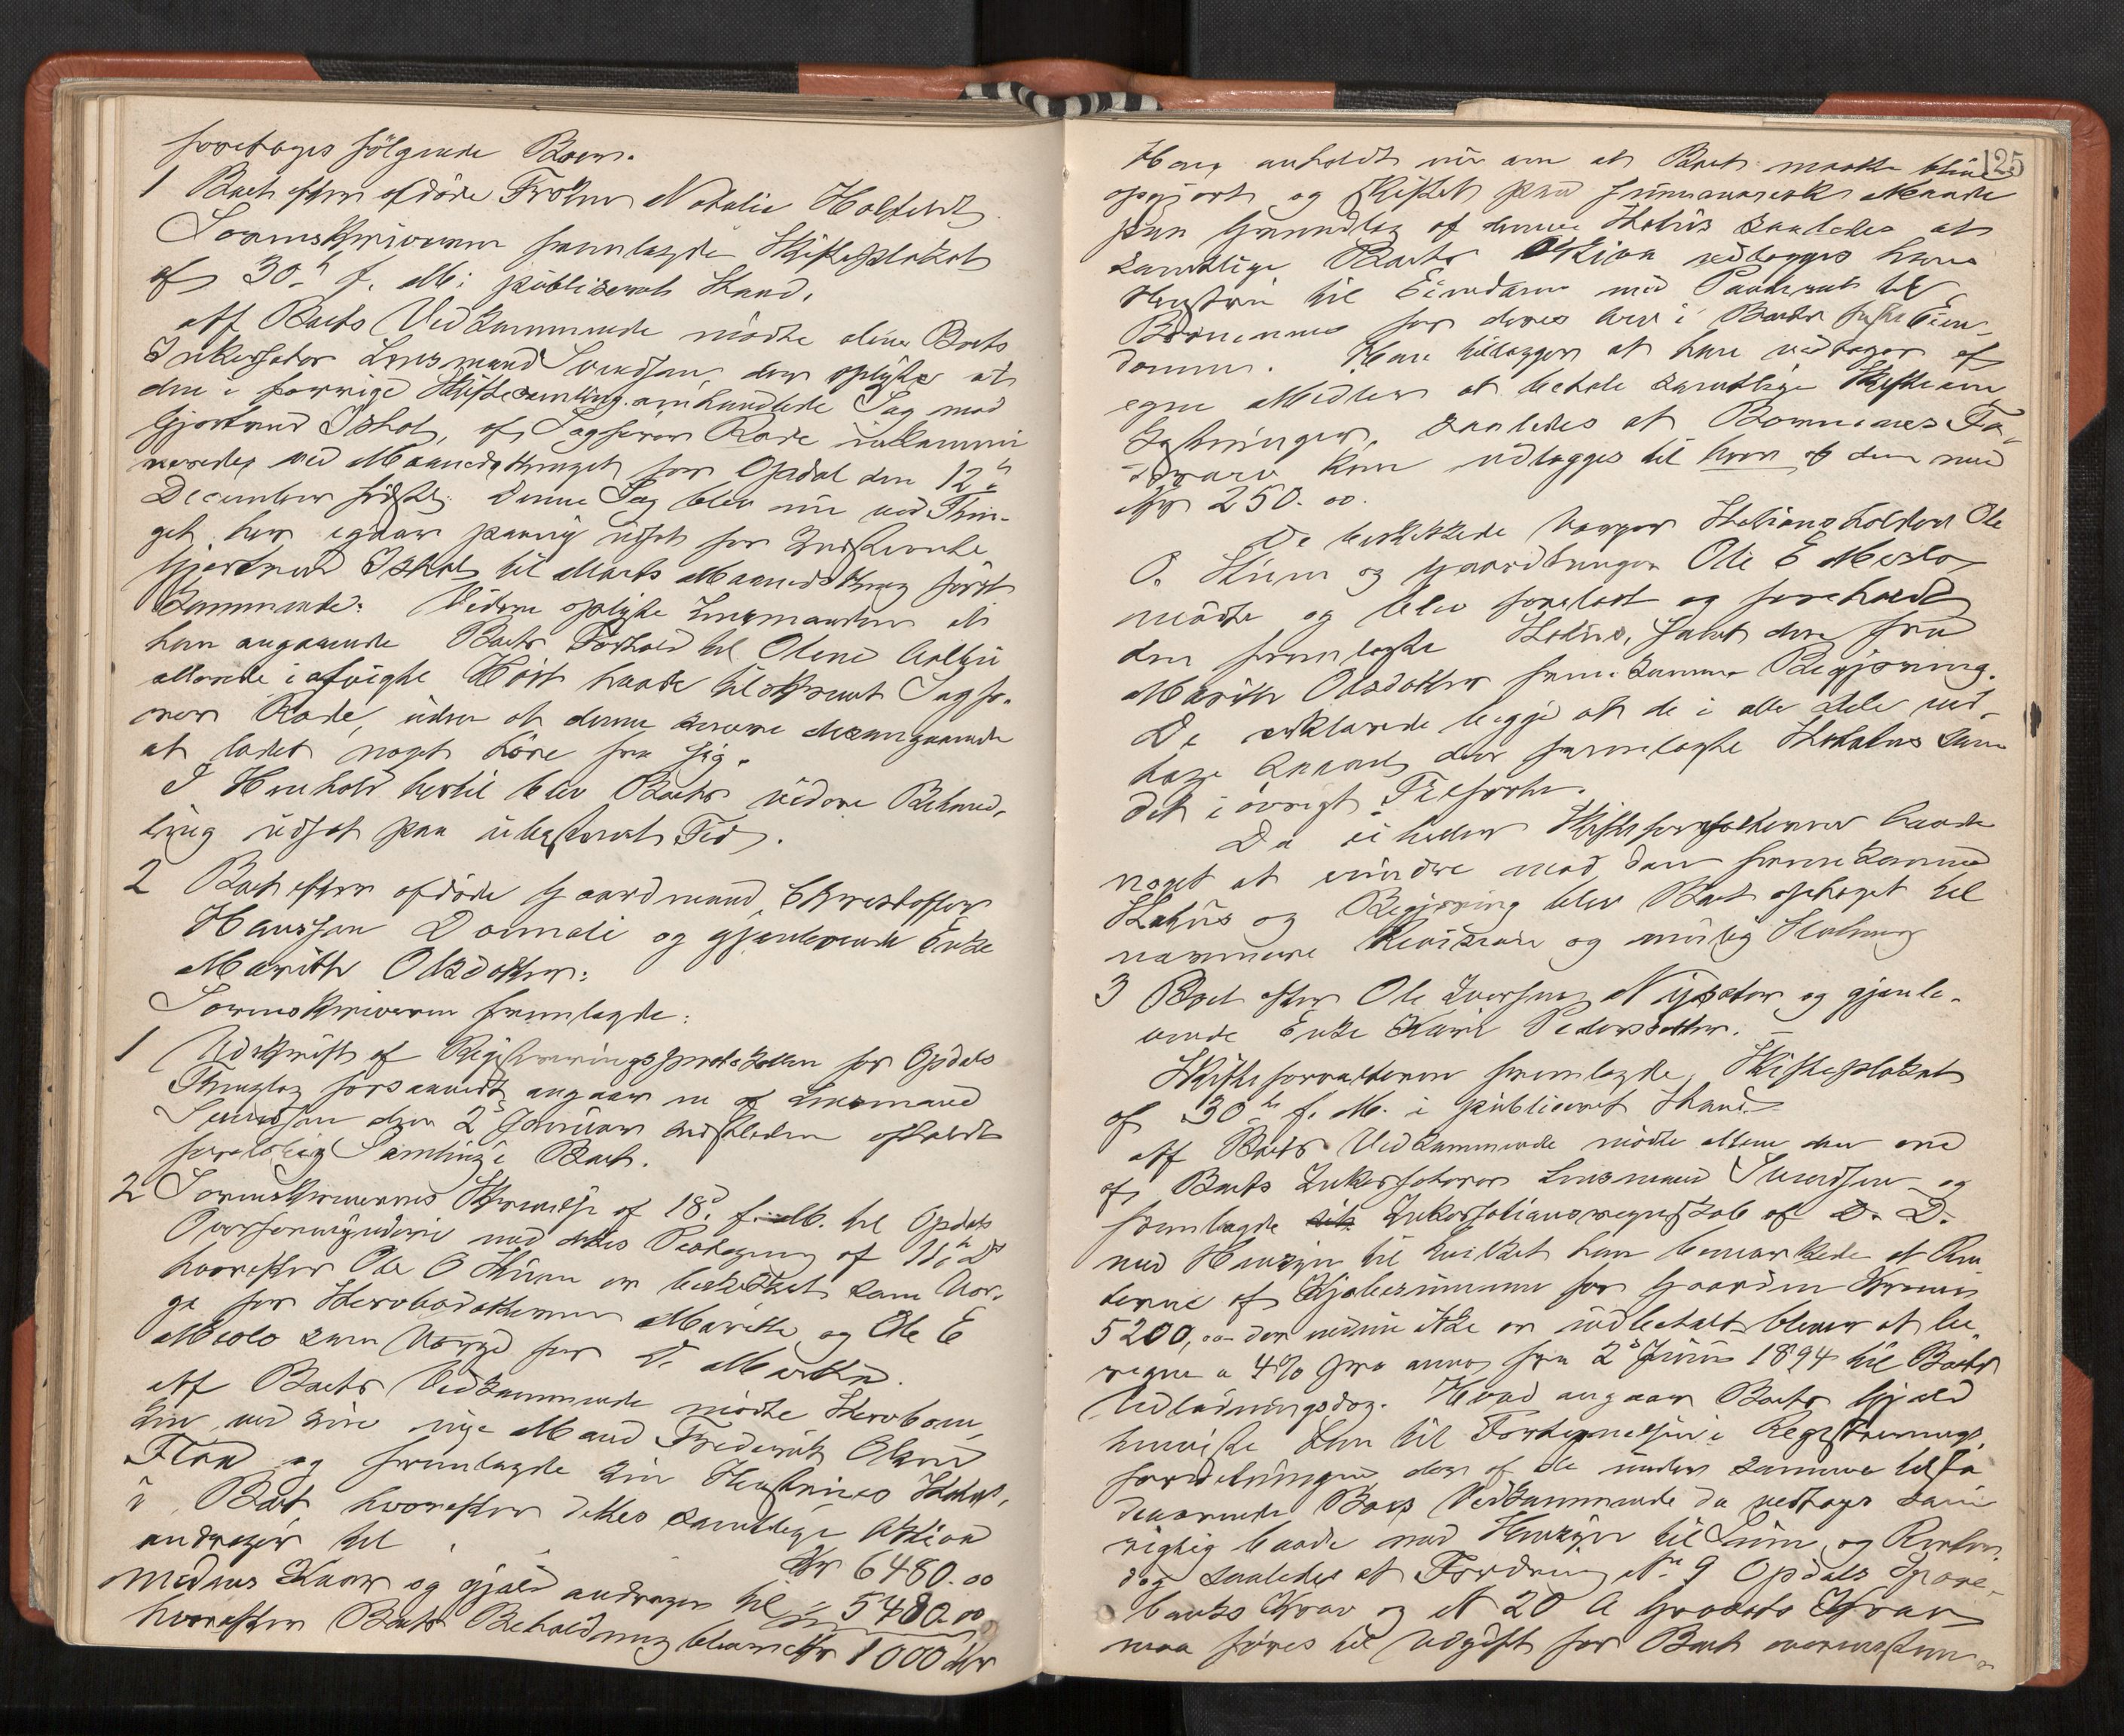 foretoges følgende Boer.
1 Boet efter afdøde Frøken Natalie Holfeldt
Sorenskriveren fremlagde Skifteplakat
af 30te f. M. i publiseret Stand.
Af Boets Vedkommende mødte alene Boets
Inkassator Lensmand Svendsen, der oplyste at
den i forrige Skiftesamling omhandlede Sag mod
Gjertrud Ishol, af Sagfører Rode
ved Maanedsthinget for Opdal den 12te
December sidstl. Denne Sag blev nu ved Thin-
get her igaar paany udsat for Indstevnte
Gjertrud Ishol til Marts Maanedsthing først
kommende. Videre oplyste Lensmanden at
han angaaende Boets Forhold til Oline
allerede i afvigte Høst havde tilskrevet Sagfø-
rer Rode, uden at denne senere desangaaende
at ladet noget høre fra sig.
I Henhold hertil blev Boets videre Behand-
ling udsat paa ubestemt Tid.
2 Boet efter afdøde Gaardmand Christoffer
Hanssen Dørrali og gjenlevende Enke
Marith Olsdatter.
Sorenskriveren fremlagde:
1 Udskrift af Registreringsprotokollen for Opdals
Thinglag forsaavidt angaar en af Lensmand
Svendsen den 2den Januar sidstleden afholdt
foreløbig Samling i Boet.
2 Sorenskriverens Skrivelse af 18d f. M. til Opdals
Overformynderi med dettes Paategning af 11te ds
hvorefter Ole O Stuen er beskikket som Vær-
ge for Stervbodatteren Marith og Ole E
Meslo som Værge for D. Martha.
Af Boets Vedkommende mødte Stervboen-
ken ved sin nye Mand Frederik Olsen
Flaa og fremlagde sin Hustrues Status
i Boet, hvorefter dettes samtlige Aktiva
andrager til
Kr 6480.00
medens Krav og gjæld andrager til " 5480.00
hvorefter Boets Beholdning bliver Kr 1000 Kr
125
Han anholdt nu om at Boet maatte blive
opgjort og skiftet paa summarisk Maade
paa Grundlag af denne Status saaledes at
samtlige Boets Aktiva udlægges hans
Hustru til Eiendom med Panteret til
Børnenes for deres Arv i Boets faste Eien-
domme. Han tillægger at han vedtager af
egne Midler at betale samtlige Skifteom-
kostninger, saaledes at Børnenes Fa-
drearv kan udlægges til hver af dem med
Kr 250.00.
De beskikkede Værger Stationsholder Ole
O. Stuen og Gaardbruger Ole E Meslo
mødte og blev forelæst og foreholdt
den fremlagte Status, samt den fra
Marith Olsdatter fremkomne Begjæring.
De erklærede begge at de i alle Dele ved-
tage saavel den fremlagte Status som
det i øvrigt Tilførte.
Da ei heller Skifteforvalteren havde
noget at erindre mod den fremkomne
Status og Begjæring blev Boet optaget til
nærmere Revision og mulig Slutning
3 Boet efter Ole Iversen Nysæter og gjenle-
vende Enke Kari Pedersdatter.
Skifteforvalteren fremlagde Skifteplakat
af 30te f. M. i publiceret Stand.
Af Boets Vedkommende mødte alene den ene
af Boets Inkassatorer Lensmand Svendsen og
fremlagde Inkassationsregnskab af D. D.
med Hensyn til hvilket han bemærkede at Ren
terne af Kjøbesummen for Gaarden Kroner
5200,00 der endnu ikke er indbetalt bliver at be
regne a 4% pro anno fra 2den Juni 1894 til Boets
Udlodningsdag. Hvad angaar Boets Gjæld
henviste han til Fortegnelsen i Registrerings
forretningen, der af de under samme tilste
deværende Boes Vedkommende da vedtages som
rigtig baade med Hensyn til Sum og Renter
dog saaledes at Fordring No 9 Opdals Spare-
banks Krav og No 20 A Krav
maa føres til Udgift for Boet overensstem-